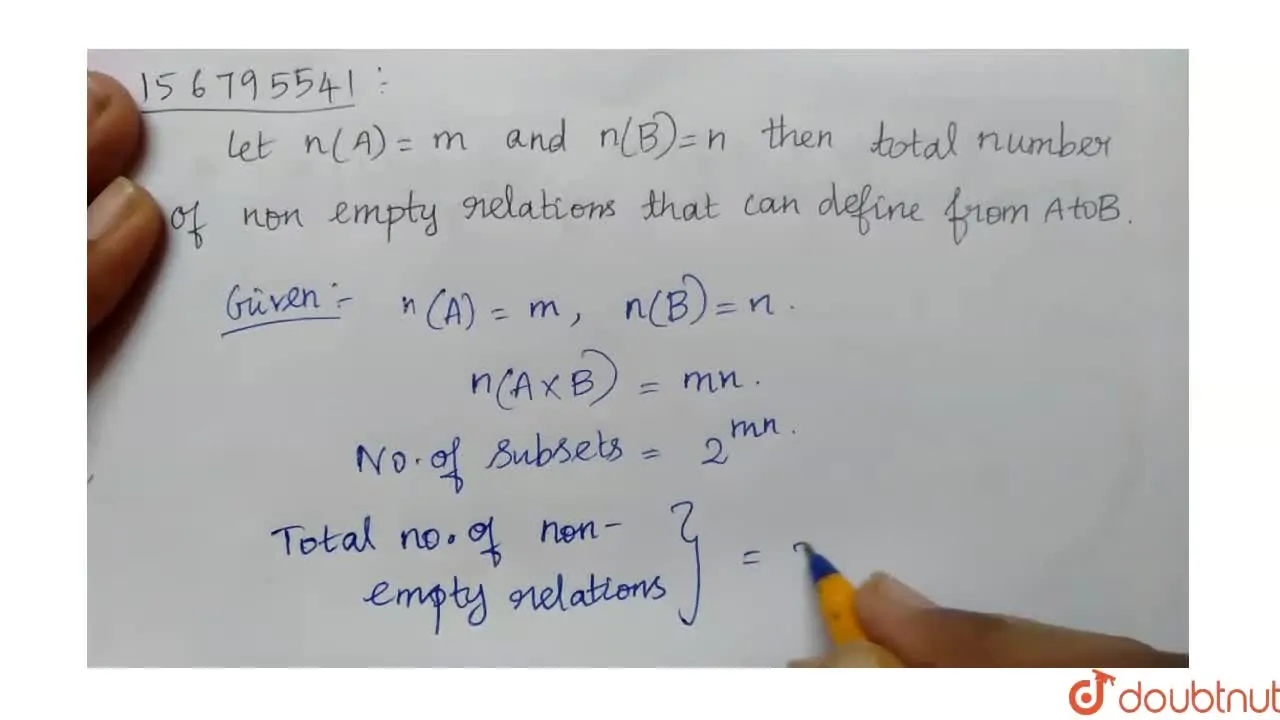 156795541:
Let n(A) = m and n(B) = n then total number
of non empty relations that can define from A to B.
Given:- n(A) = m, n(B) = n.
n(A×B) = mn.
No. of subsets = 2^mn.
Total no. of non-
empty relations } =
doubtnut